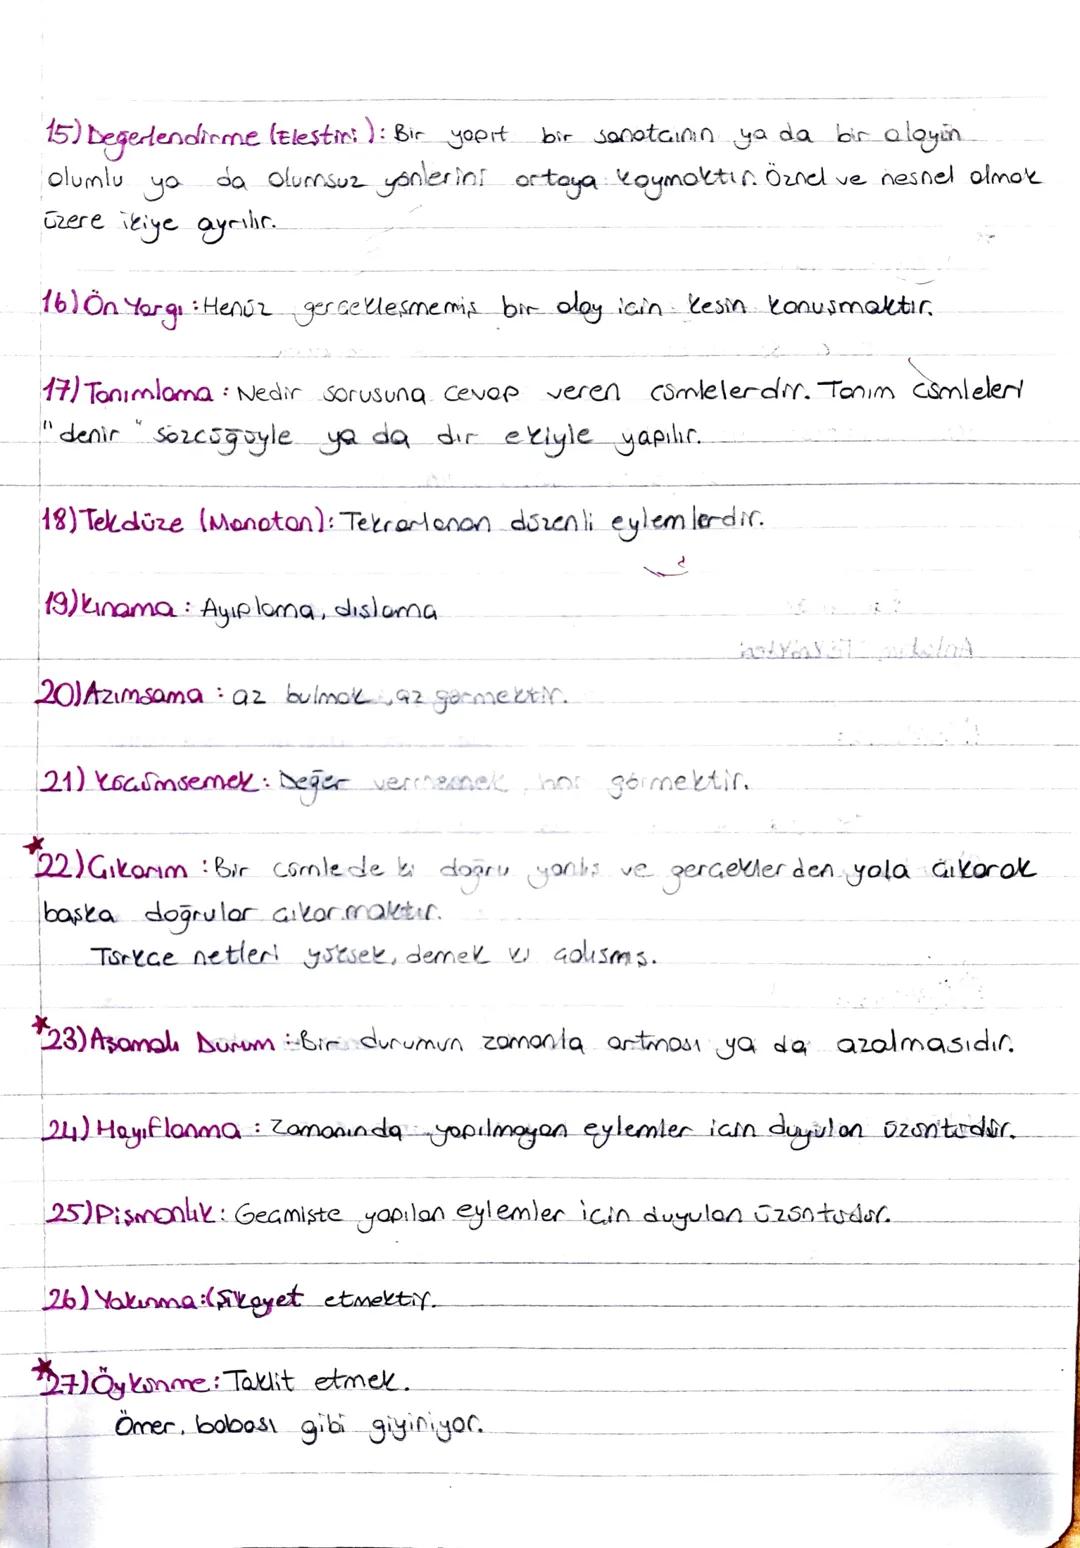 15) Değerlendirme (Eleştiri): Bir yapıt bir sanatçının ya da bir olayın
olumlu ya da olumsuz yönlerini ortaya koymaktır. Öznel ve nesnel olmak
üzere ikiye ayrılır.
16) Ön Yargı: Henüz gerçekleşmemiş bir olay için kesin konuşmaktır.
17) Tanımlama: Nedir sorusuna cevap veren cümlelerdir. Tanım cümleleri
"denir" sözcüğüyle ya da dır ekiyle yapılır.
18) Tekdüze (Monoton): Tekrarlanan düzenli eylemlerdir.
19) Kınama: Ayıplama, dışlama
20) Azımsama: az bulmak, az görmektir.
21) Küçümsemek: Değer vermemek, hor görmektir.
22) Çıkarım: Bir cümlede ki doğru yanlış ve gerçeklerden yola çıkarak
başka doğrular çıkarmaktır.
Türkçe netleri yüksek, demek ki çalışmış.
23) Aşamalı Durum: Bir durumun zamanla artması ya da azalmasıdır.
24) Hayıflanma: Zamanında yapılmayan eylemler için duyulan üzüntüdür.
25) Pişmanlık: Geçmişte yapılan eylemler için duyulan üzüntüdür.
26) Yakınma: (Şikayet etmektir.
27) Öykünme: Taklit etmek.
Ömer, babası gibi giyiniyor.